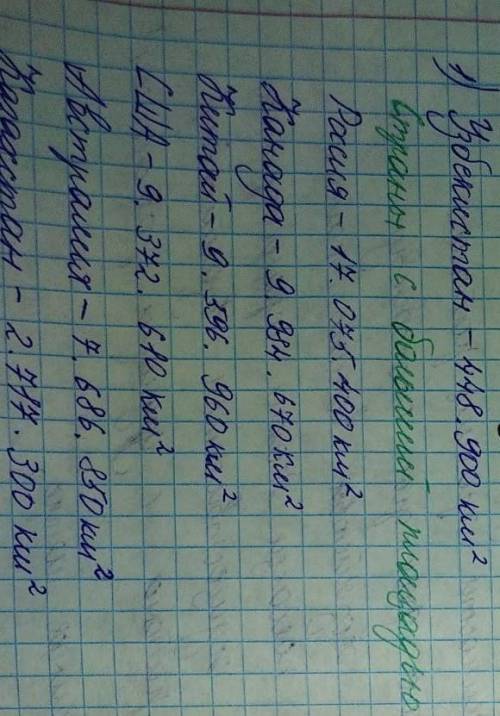 1) Узбекистан - 448.900 км²
Страны с большей площадью
Россия - 17.075.400 км²
Канада - 9.984.670 км²
Китай - 9.596.960 км²
США - 9.372.610 км²
Австралия - 7.686.850 км²
Казахстан - 2.717.300 км²